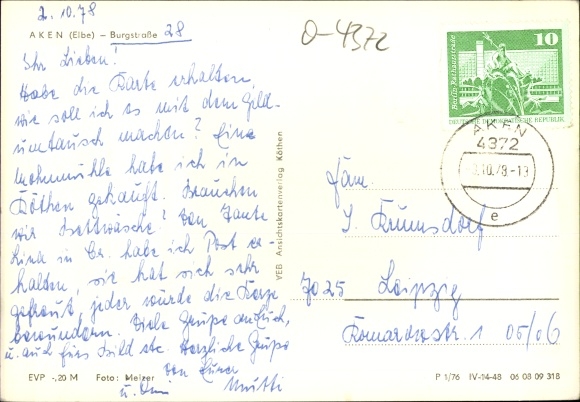 2.10.78
AKEN (Elbe) – Burgstraße 28
O-4372
Ihr Lieben!
Habe die Karte erhalten,
wie soll ich es mit dem Geld-
umtausch machen? Eine
habe ich in
Köthen gekauft. Brauchen
wir Bettwäsche? Von Tante
in Br. habe ich Post er-
halten, sie hat sich sehr
gefreut, jeder würde die
bewundern. Viele Grüße an Euch,
u. auch fürs Bild etc. Herzliche Grüße
von Eurer
u. Mutti
VEB Ansichtskartenverlag Köthen
10
Berlin, Rathausstraße
DEUTSCHE DEMOKRATISCHE REPUBLIK
AKEN
4372
.10.78-13
e
Fam.
J. Krumsdorf
7025 Leipzig
05/06
EVP -,20 M Foto: Melzer
P 1/76 IV-14-48 06 08 09 318